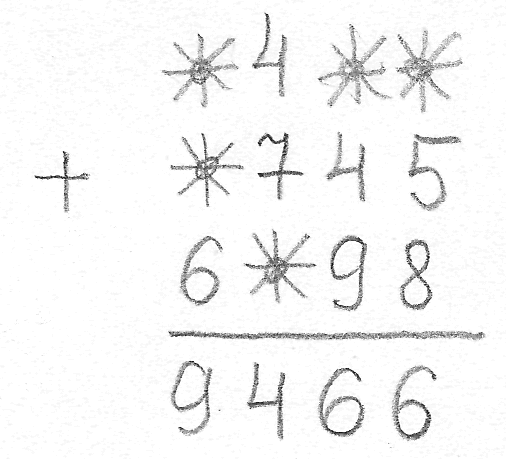 *4**
+ *745
6*98
9466